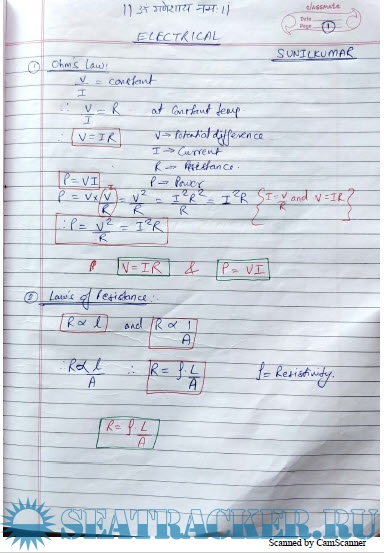 || ॐ गणेशाय नमः ||
classmate
Date
Page 1
ELECTRICAL
SUNILKUMAR
① Ohm's Law:
V/I = constant
∴ V/I = R at Constant temp
∴ V = IR V → Potential difference
I → Current
R → Resistance.
P = VI P → Power
P = V × (V/R) = V²/R = I²R²/R = I²R {I = V/R and V = IR}
∴ P = V²/R = I²R
V = IR & P = VI
② Laws of Resistance:
R ∝ l and R ∝ 1/A
∴ R ∝ l/A ∴ R = ρ·L/A ρ = Resistivity.
R = ρ·L/A
SEATRACKER.RU
Scanned by CamScanner